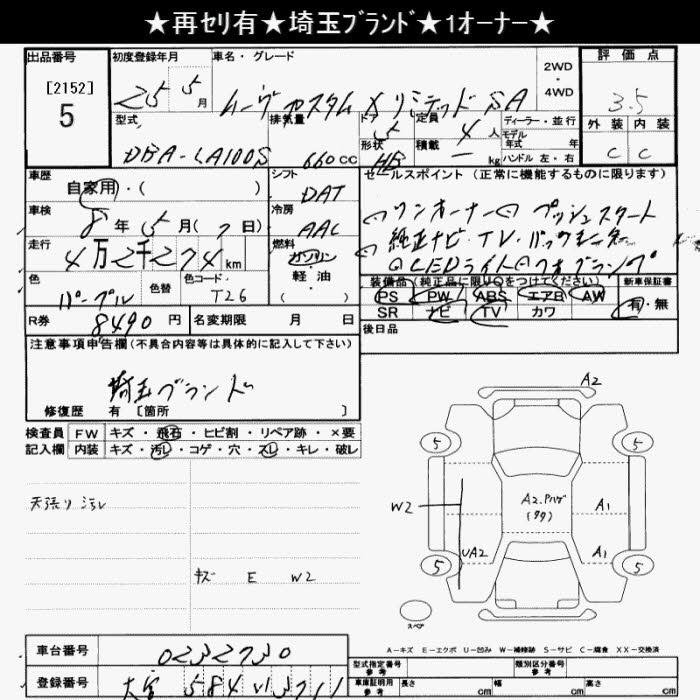 ★再セリ有★埼玉ブランド★1オーナー★
出品番号 初度登録年月 車名・グレード 2WD・4WD 評価点
[2152]
5 25年 5月 ムーヴカスタム X リミテッド SA 3.5
型式 排気量 ドア 定員 ディーラー・並行 外装 内装
DBA-LA100S 660cc 5 4人 モデル年式 年 C C
形状 HB 積載 ー kg ハンドル 左・右
車歴 シフト セールスポイント (正常に機能するものに限ります)
自家用・( ) DAT ワンオーナー プッシュスタート
車検 8年 5月(7日) 冷房 AAC 純正ナビ・TV・バックモニター
走行 4万2千274km 燃料 ガソリン LEDライト フォグランプ
軽・油
色 色替 色コード ( ) 装備品 (純正品に限りOをつけてください) 新車保証書
パープル T26 PS PW ABS エアB AW 有・無
R券 8490円 名変期限 月 日 SR ナビ TV カワ
注意事項申告欄(不具合内容等は具体的に記入して下さい) 後日品
埼玉ブランド
修復歴 有 [箇所 ]
検査員 FW キズ・飛石・ヒビ割・リペア跡・×要
記入欄 内装 キズ・汚レ・コゲ・穴・スレ・キレ・破レ
天張り汚レ
キズ E W2
A2
5 5
W2 A2.Pハゲ A1
UA2 A1
5 5
スペア
A-キズ E-エクボ U-凹み W-補修跡 S-サビ C-腐食 XX-交換済
車台番号 0232730 型式指定番号 参考 類別区分番号 参考
登録番号 大宮 584 い 3711 車庫証明用 参考 長さ cm 幅 cm 高さ cm